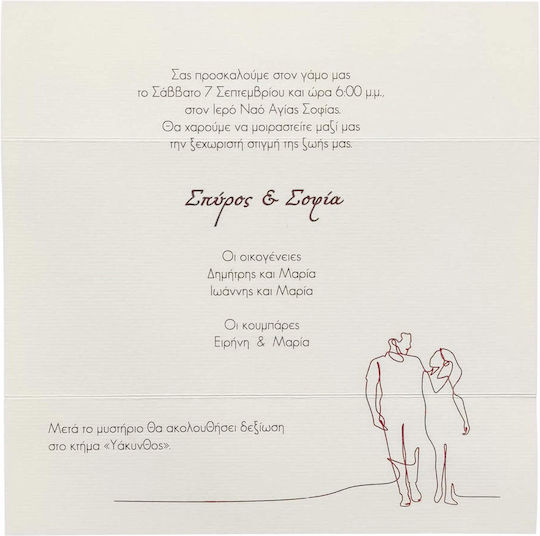 Σας προσκαλούμε στον γάμο μας
το Σάββατο 7 Σεπτεμβρίου και ώρα 6:00 μ.μ.,
στον Ιερό Ναό Αγίας Σοφίας.
Θα χαρούμε να μοιραστείτε μαζί μας
την ξεχωριστή στιγμή της ζωής μας.
Σπύρος & Σοφία
Οι οικογένειες
Δημήτρης και Μαρία
Ιωάννης και Μαρία
Οι κουμπάρες
Ειρήνη & Μαρία
Μετά το μυστήριο θα ακολουθήσει δεξίωση
στο κτήμα «Υάκυνθος».